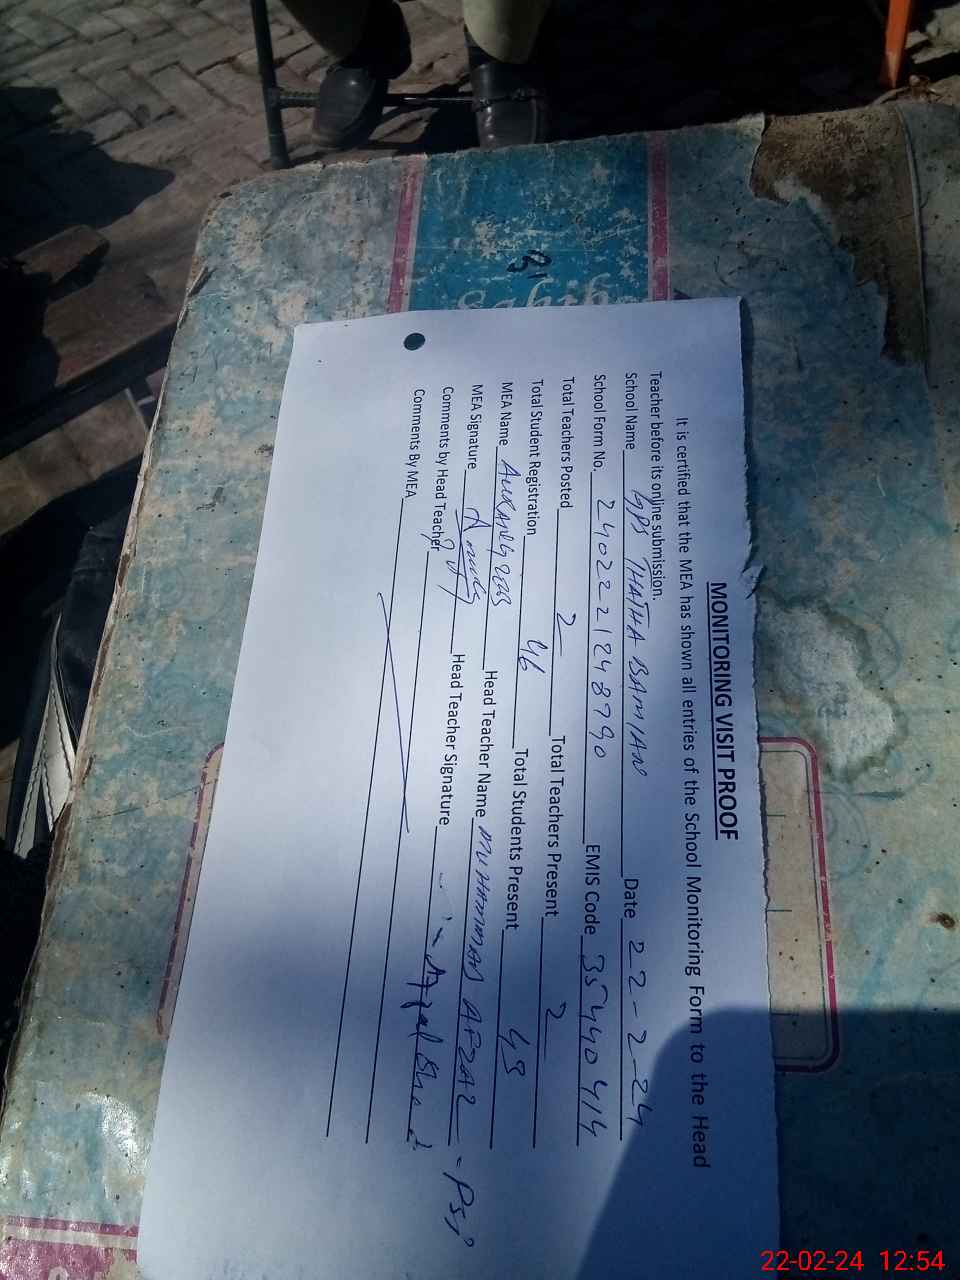 MONITORING VISIT PROOF
It is certified that the MEA has shown all entries of the School Monitoring Form to the Head
Teacher before its online submission.
School Name GPS THATHA BAMIAN Date 22-2-24
School Form No. 240222124 8790 EMIS Code 35440414
Total Teachers Posted 2 Total Teachers Present 2
Total Student Registration 46 Total Students Present
MEA Name AURANGZEB Head Teacher Name MUHAMMAD AFZAL - PST
MEA Signature Head Teacher Signature Afzal
Comments by Head Teacher
Comments By MEA
22-02-24 12:54